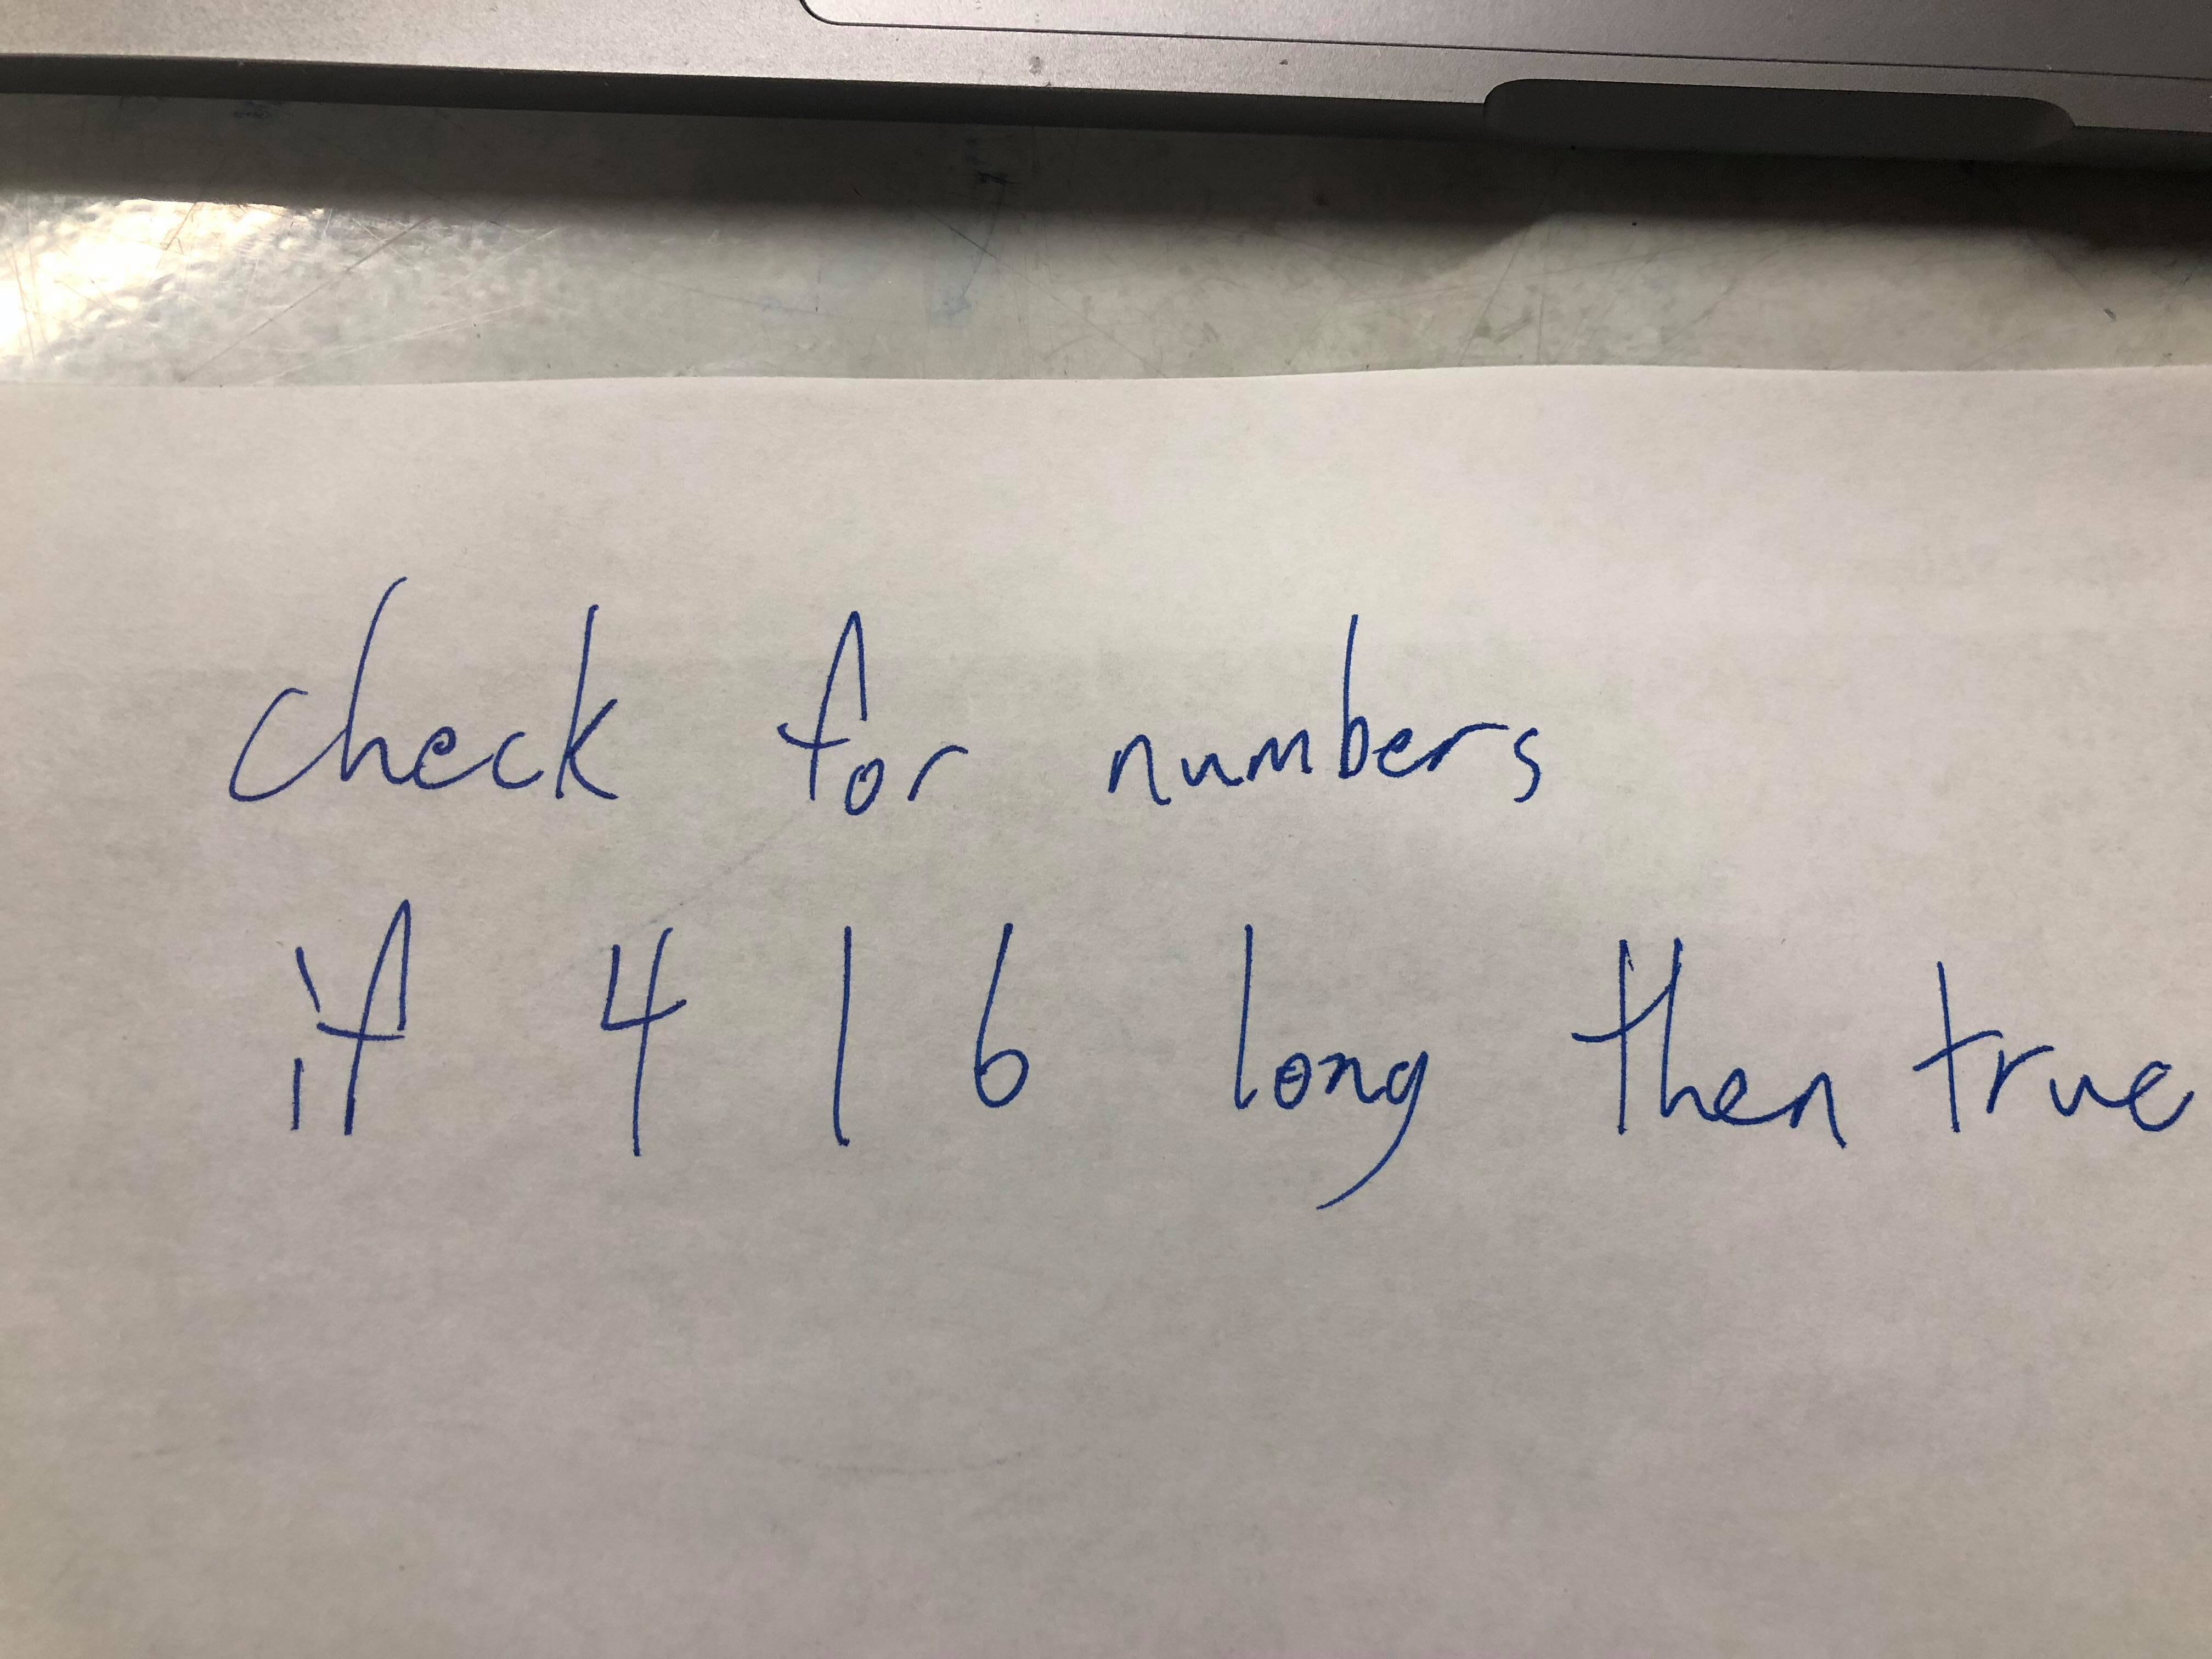 check for numbers
if 4 | 6 long then true